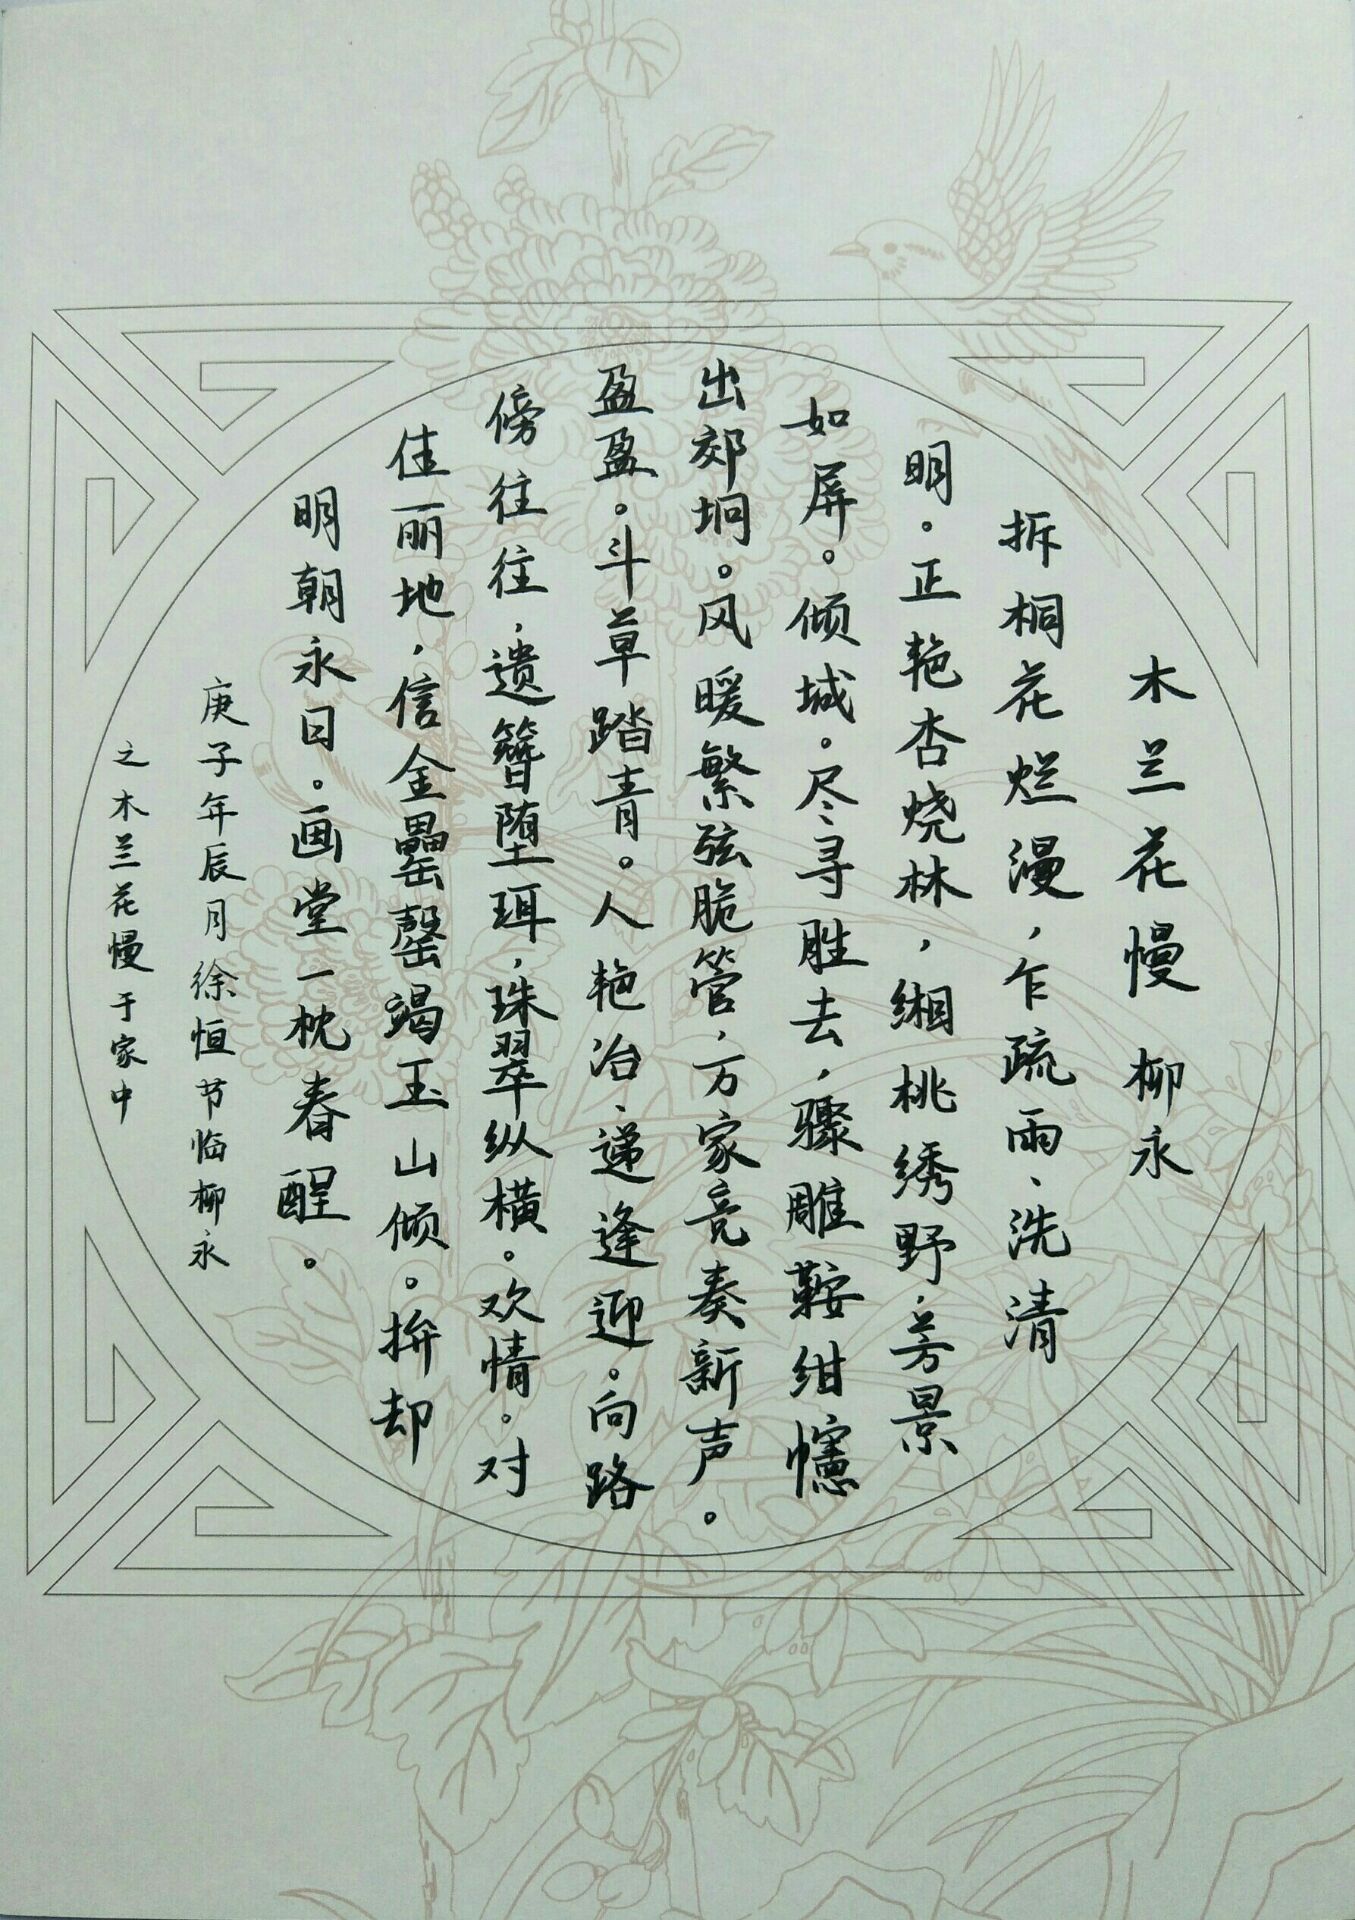 木兰花慢 柳永
拆桐花烂漫，乍疏雨、洗清
明。正艳杏烧林，缃桃绣野，芳景
如屏。倾城。尽寻胜去，骤雕鞍绀幰
出郊坰。风暖繁弦脆管，万家竞奏新声。
盈盈。斗草踏青。人艳冶、递逢迎。向路
傍往往，遗簪堕珥，珠翠纵横。欢情。对
佳丽地，信金罍罄竭玉山倾。拚却
明朝永日。画堂一枕春酲。
庚子年辰月徐恒节临柳永
之木兰花慢于家中